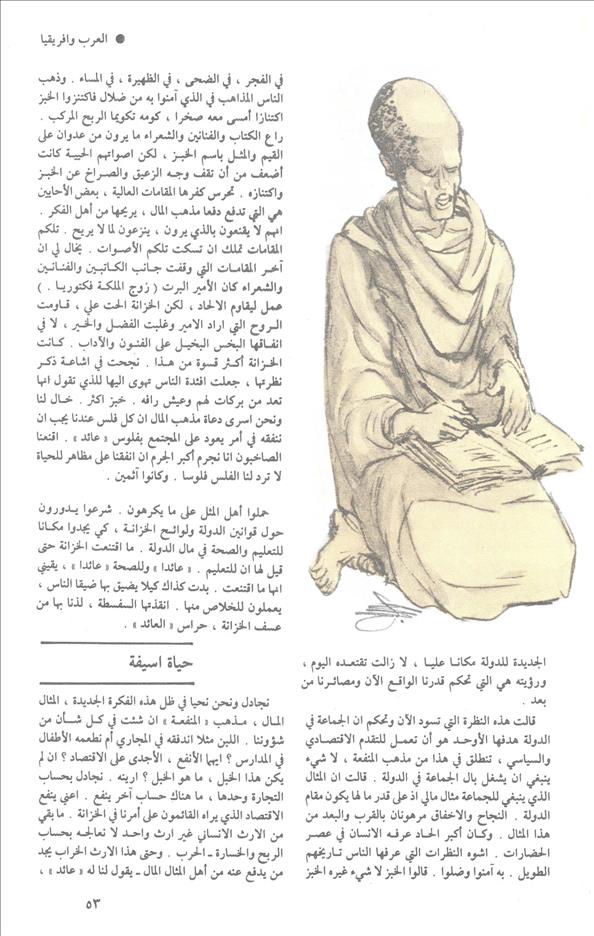 ● العرب وافريقيا
الجديدة للدولة مكانا عليا ، لا زالت تقتعده اليوم ،
ورؤيته هي التي تحكم قدرنا الواقع الآن ومصائرنا من
بعد .
قالت هذه النظرة التي تسود الآن وتحكم ان الجماعة في
الدولة هدفها الأوحد هو أن تعمل للتقدم الاقتصادي
والسياسي ، تنطلق في هذا من مذهب المنفعة ، لا شيء
ينبغي ان يشغل بال الجماعة في الدولة . قالت ان المثال
الذي ينبغي للجماعة مثال مالي اذ على قدر ما لها يكون مقام
الدولة . النجاح والاخفاق مرهونان بالقرب والبعد من
هذا المثال . وكان أكبر الحاد عرفه الانسان في عصر
الحضارات . اشوه النظرات التي عرفها الناس تاريخهم
الطويل . به آمنوا وضلوا . قالوا الخبز لا شيء غيره الخبز
في الفجر ، في الضحى ، في الظهيرة ، في المساء . وذهب
الناس المذاهب في الذي آمنوا به من ضلال فاكتنزوا الخبز
اكتنازا أمسى معه صخرا ، كومه تكويما الربح المركب .
راع الكتاب والفنانين والشعراء ما يرون من عدوان على
القيم والمثل باسم الخبز ، لكن اصواتهم الحيية كانت
أضعف من أن تقف وجه الزعيق والصراخ عن الخبز
واكتنازه . تحرس كفرها المقامات العالية ، بعض الأحايين
هي التي تدفع دفعا مذهب المال ، يريحها من أهل الفكر .
انهم لا يقنعون بالذي يرون ، ينزعون لما لا يريح . تلكم
المقامات تملك ان تسكت تلكم الأصوات . يخال لي ان
آخر المقامات التي وقفت جانب الكاتبين والفنانين
والشعراء كان الأمير البرت ( زوج الملكة فكتوريا . )
عمل ليقاوم الالحاد ، لكن الخزانة الحت علي ، قاومت
الروح التي اراد الامير وغلبت الفضل والخير ، لا في
انفاقها البخس البخيل على الفنون والآداب . كانت
الخزانة أكثر قسوة من هذا . نجحت في اشاعة ذكر
نظرتها ، جعلت افئدة الناس تهوى اليها للذي تقول انها
تعد من بركات لهم وعيش رافه . خبز اكثر . خال لنا
ونحن اسرى دعاة مذهب المال ان كل فلس عندنا يجب ان
ننفقه في أمر يعود على المجتمع بفلوس « عائد » . اقنعنا
الصاخبون انا نجرم أكبر الجرم ان انفقنا على مظاهر للحياة
لا ترد لنا الفلس فلوسا . وكانوا آثمين .
حملوا أهل المثل على ما يكرهون . شرعوا يدورون
حول قوانين الدولة ولوائح الخزانة ، كي يجدوا مكانا
للتعليم والصحة في مال الدولة . ما اقتنعت الخزانة حتى
قيل لها ان للتعليم . « عائدا » وللصحة « عائدا » ، يقيني
انها ما اقتنعت . بدت كذاك كيلا يضيق بها ضيقا الناس ،
يعملون للخلاص منها . انقذتها السفسطة ، لذنا بها من
عسف الخزانة ، حراس « العائد » .
حياة اسيفة
نجادل ونحن نحيا في ظل هذه الفكرة الجديدة ، المثال
المال ، مذهب « المنفعة » ان شئت في كل شأن من
شؤوننا . اللبن مثلا اندفقه في المجاري أم نطعمه الأطفال
في المدارس ؟ ايهما الأنفع ، الأجدى على الاقتصاد ؟ ان لم
يكن هذا الخبل ، ما هو الخبل ؟ ارينه . نجادل بحساب
التجارة وحدها ، ما هناك حساب آخر ينفع . اعني ينفع
الاقتصاد الذي يراه القائمون على أمرنا في الخزانة . ما بقي
من الارث الانساني غير ارث واحد لا نعالجه بحساب
الربح والخسارة ـ الحرب . وحتى هذا الارث الخراب يجد
من يدفع عنه من أهل المثال المال ـ يقول لنا له « عائد » ،
٥٣